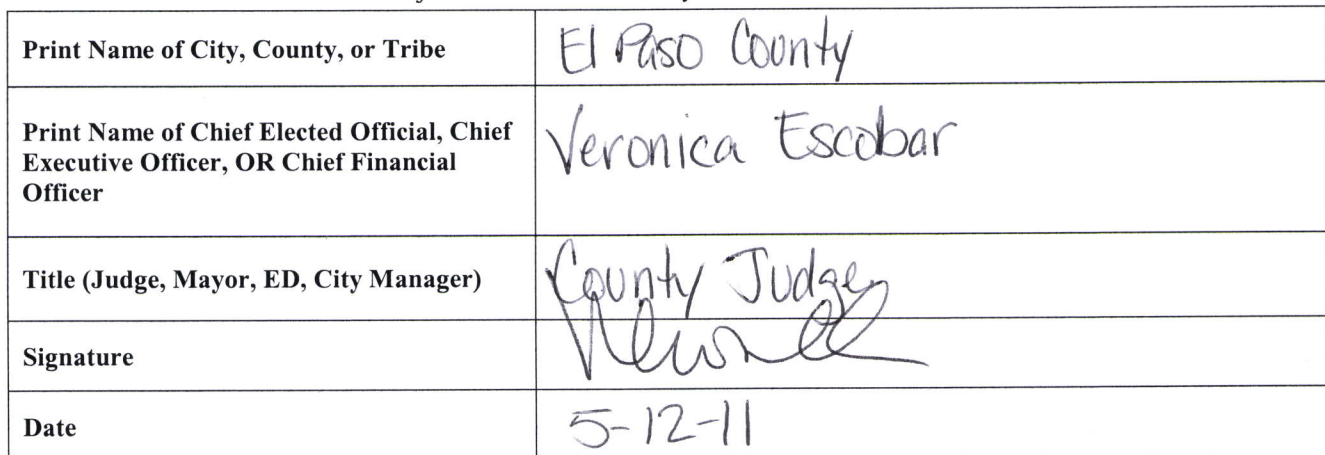 Print Name of City, County, or Tribe
El Paso County
Print Name of Chief Elected Official, Chief
Executive Officer, OR Chief Financial
Officer
Veronica Escobar
Title (Judge, Mayor, ED, City Manager)
County Judge
Signature
Date
5-12-11